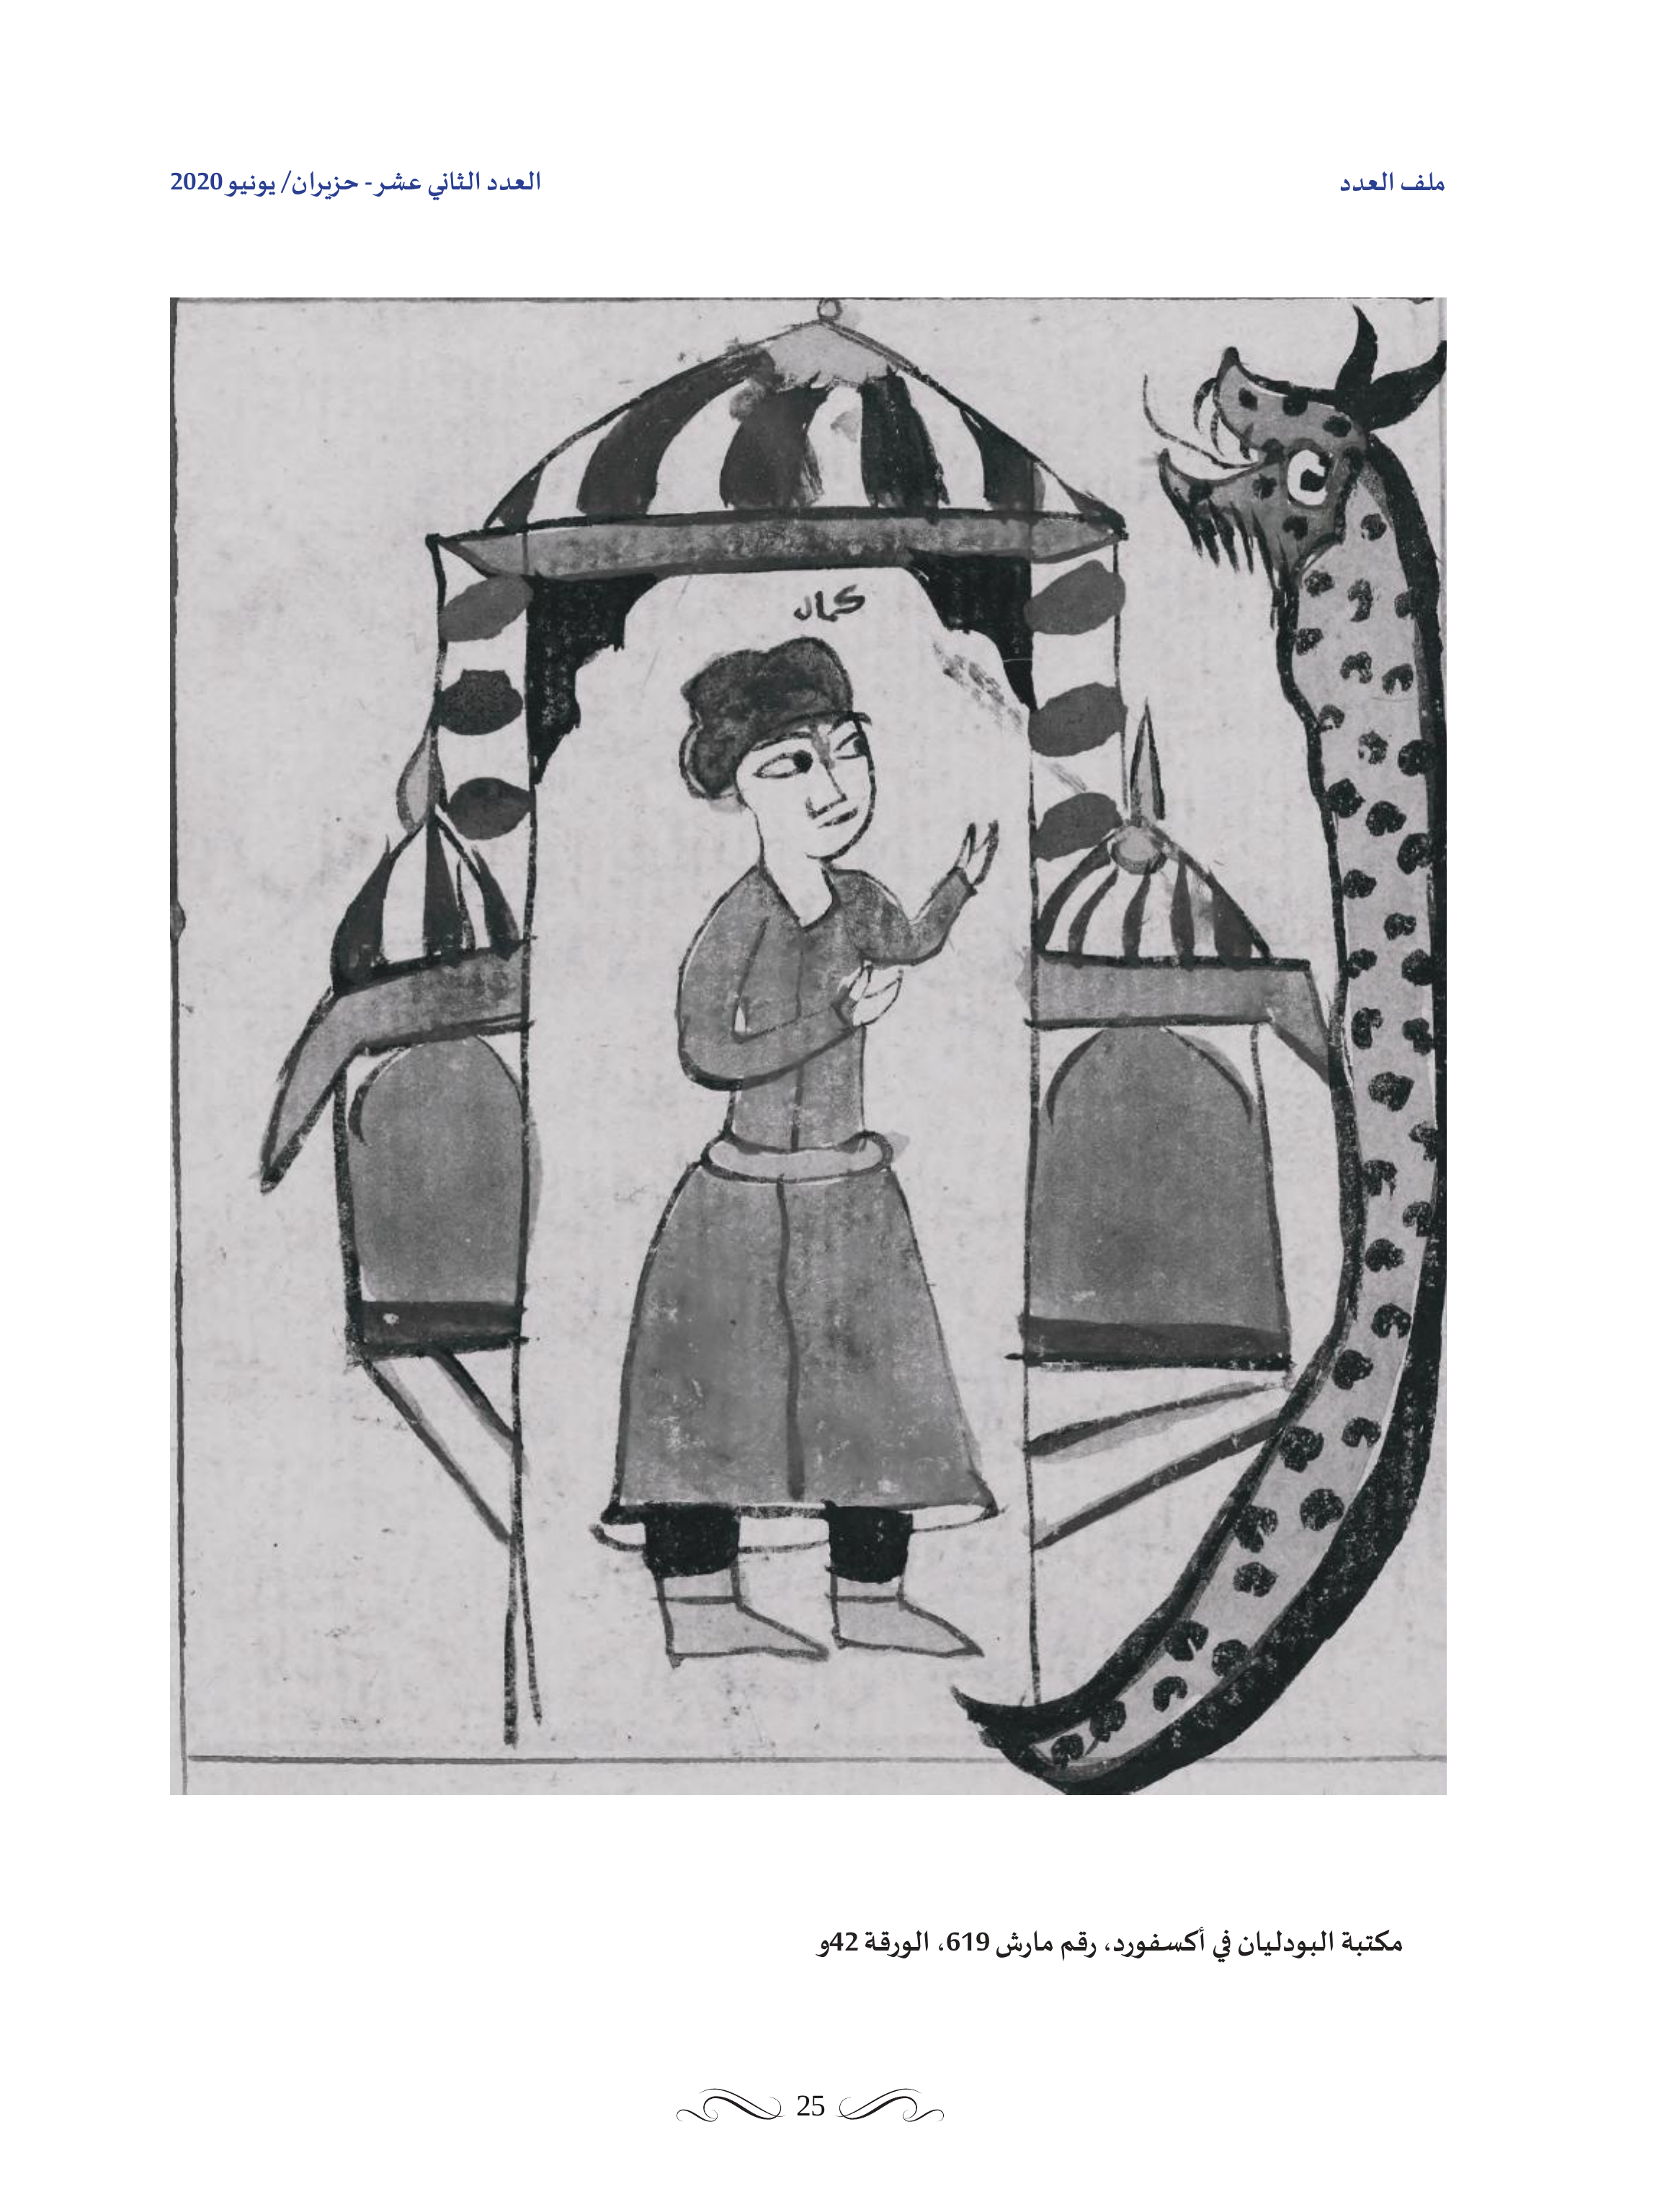 ملف العدد
العدد الثاني عشر- حزيران/ يونيو 2020
كمال
مكتبة البودليان في أكسفورد، رقم مارش 619، الورقة 42و
25